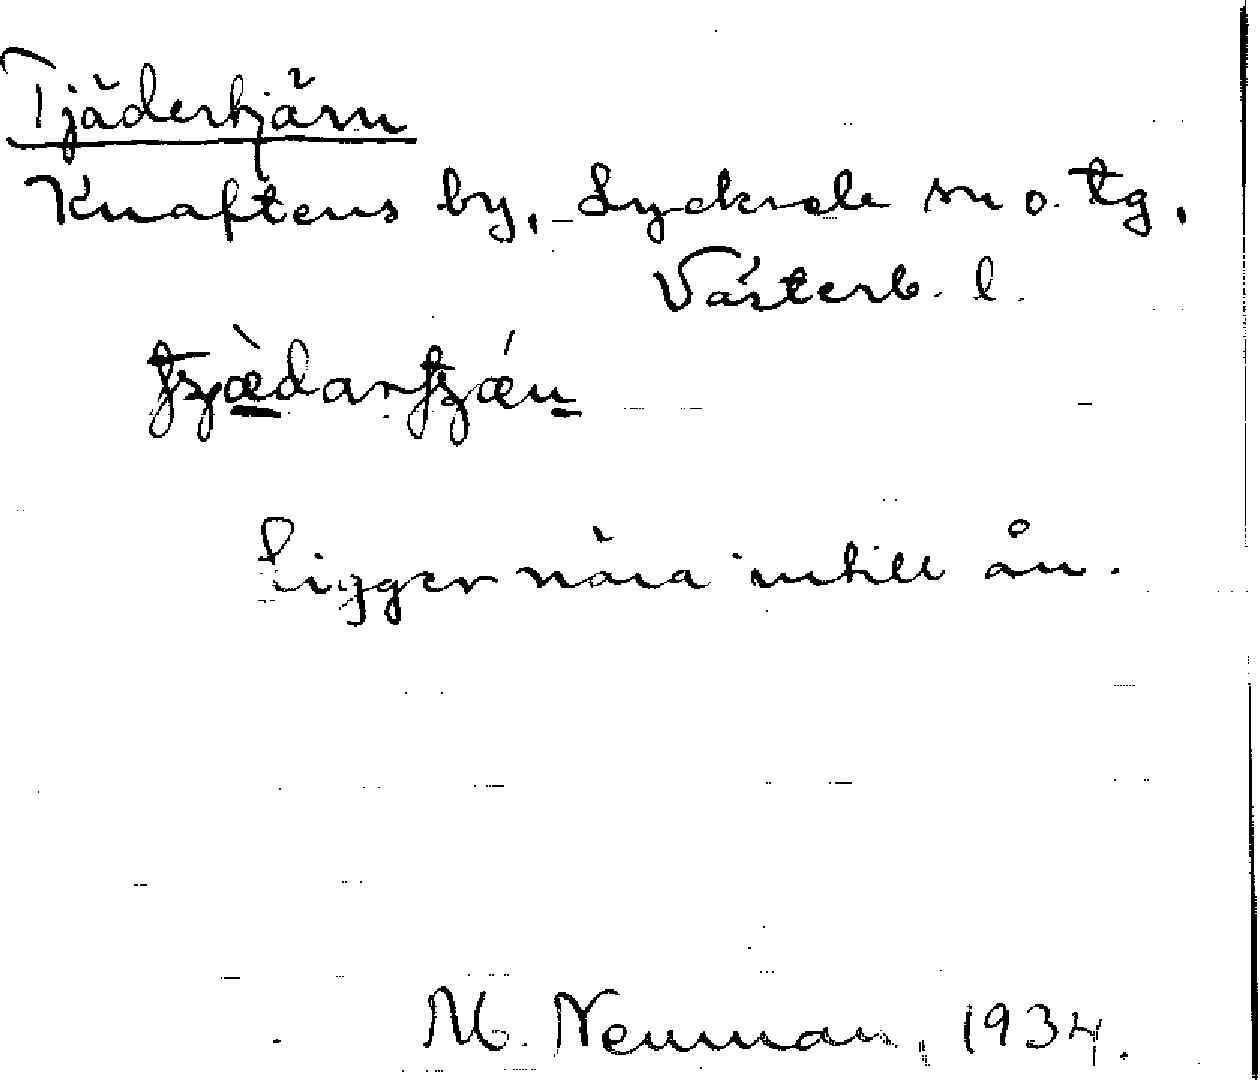 Tjädertjärn
Knaftens by, Lycksele sn o. tg.
Västerb. l.
ligger nära intill ån.
M. Neuman, 1934.